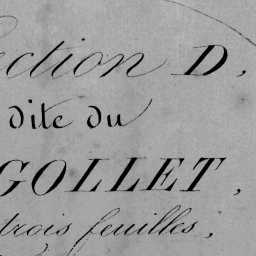 ection D,
dite du
GOLLET,
trois feuilles,